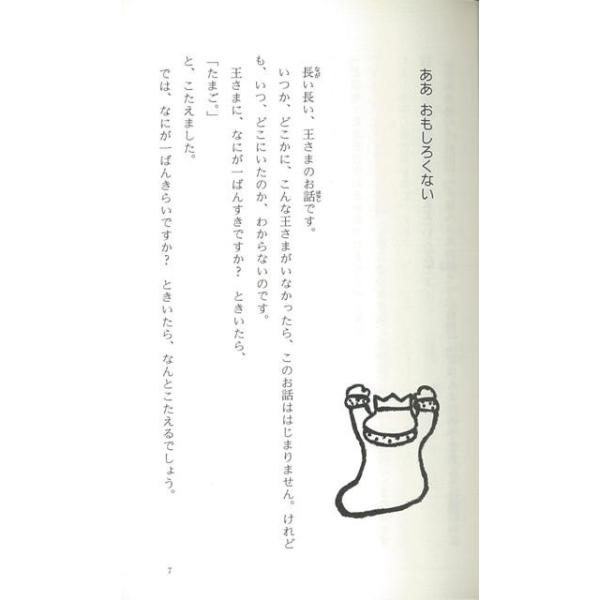 ああ おもしろくない
長い長い、王さまのお話です。
いつか、どこかに、こんな王さまがいなかったら、このお話ははじまりません。けれど
も、いつ、どこにいたのか、わからないのです。
王さまに、なにが一ばんすきですか？ ときいたら、
「たまご。」
と、こたえました。
では、なにが一ばんきらいですか？ ときいたら、なんとこたえるでしょう。
7